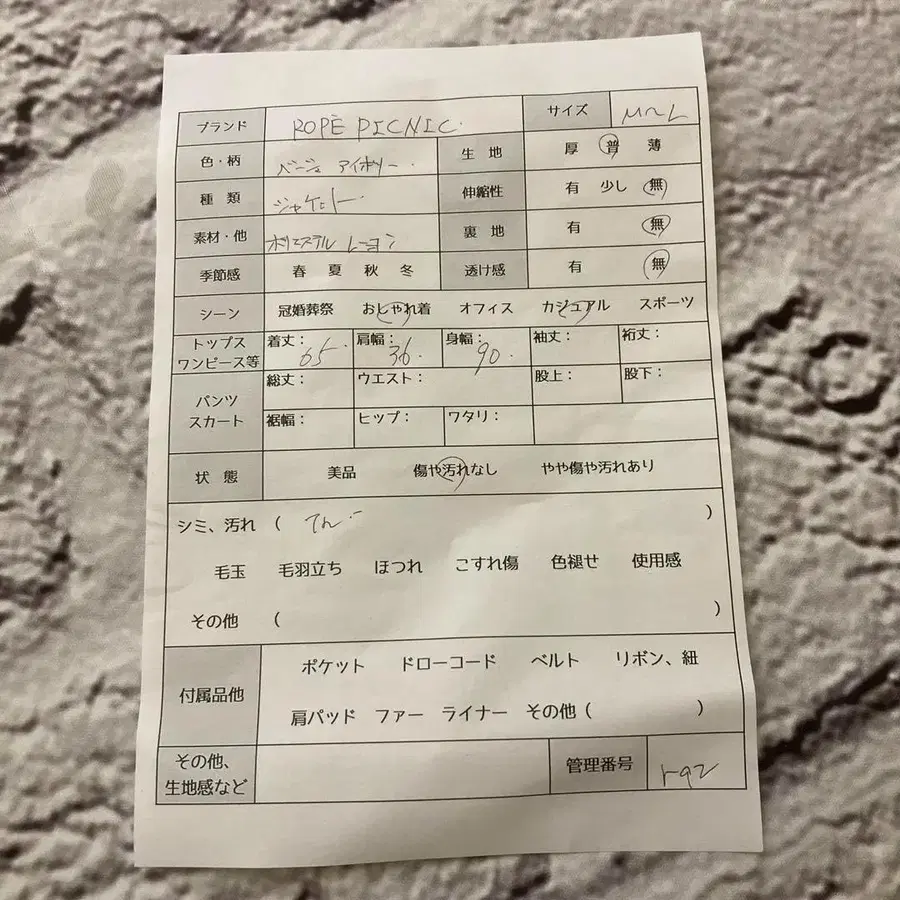 ブランド ROPÉ PICNIC. サイズ M〜L
色・柄 ベージュ アイボリー. 生 地 厚 普 薄
種 類 ジャケット. 伸縮性 有 少し 無
素材・他 ポリエステル レーヨン 裏 地 有 無
季節感 春 夏 秋 冬 透け感 有 無
シーン 冠婚葬祭 おしゃれ着 オフィス カジュアル スポーツ
トップス ワンピース等 着丈: 65. 肩幅: 36. 身幅: 90. 袖丈: 裄丈:
パンツ スカート 総丈: ウエスト: 股上: 股下:
裾幅: ヒップ: ワタリ:
状 態 美品 傷や汚れなし やや傷や汚れあり
シミ、汚れ ( )
毛玉 毛羽立ち ほつれ こすれ傷 色褪せ 使用感
その他 ( )
付属品他 ポケット ドローコード ベルト リボン、紐
肩パッド ファー ライナー その他 ( )
その他、 生地感など 管理番号 r92